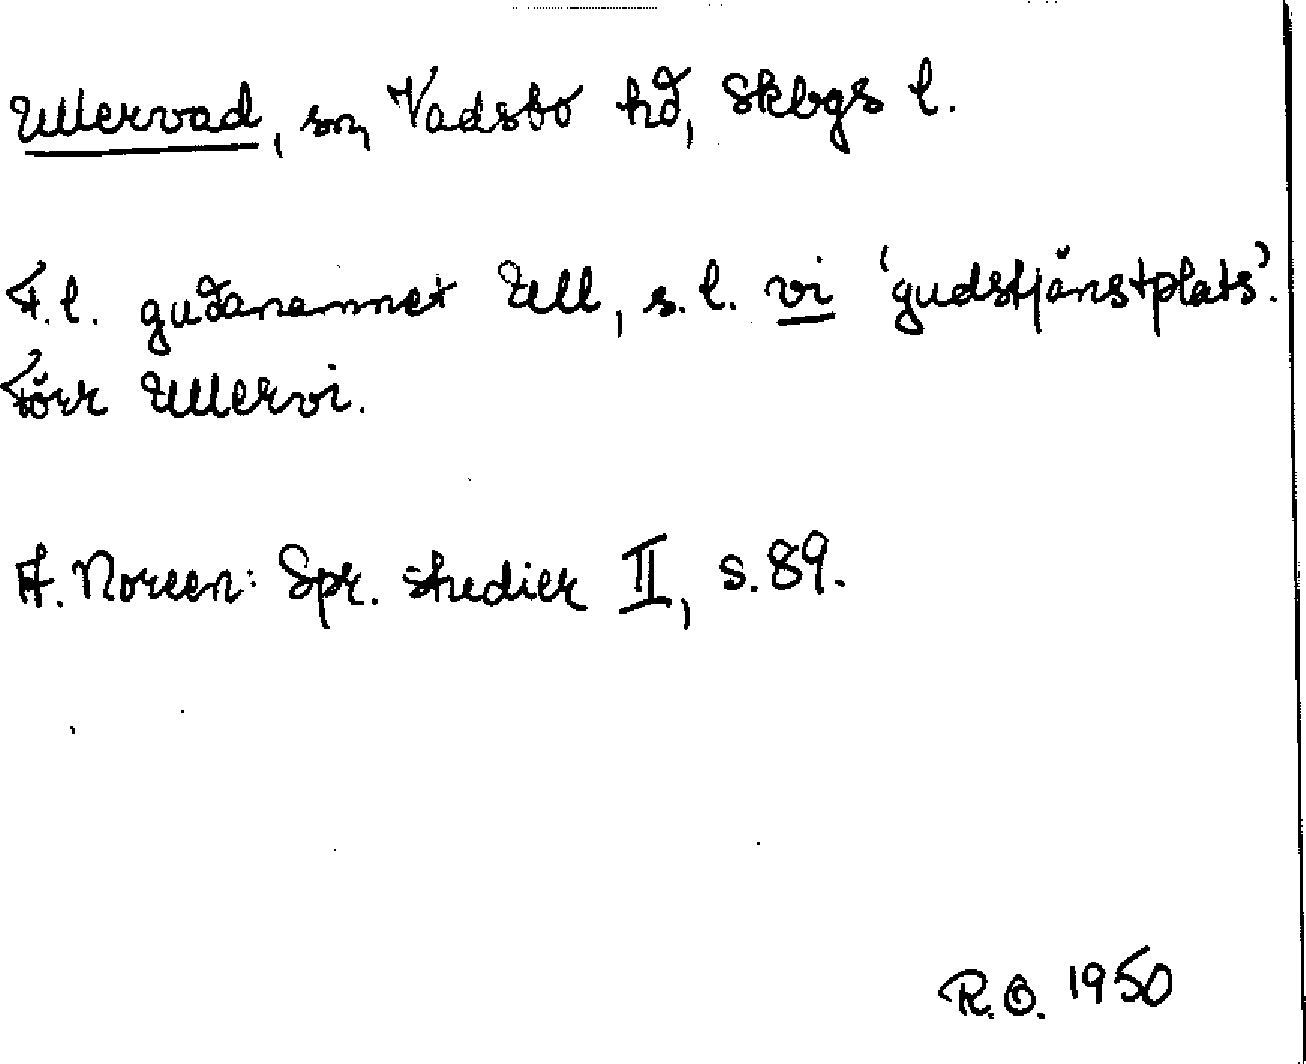 Ullervad, sn, Vadsbo hd, Skbgs l.
F.l. gudanamnet Ull, s.l. vi 'gudstjänstplats'.
Förr Ullervi.
A. Noreen: Spr. studier II, s. 89.
R.O. 1950